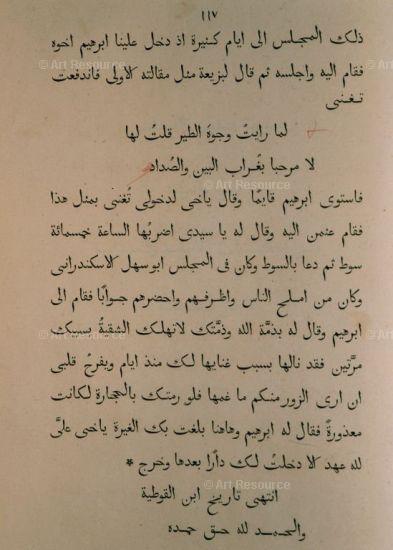 ١١٧
ذلك المجلس الى ايام كثيرة اذ دخل علينا ابرهيم اخوه
فقام اليه واجلسه ثم قال لبزيعة مثل مقالته الاولى فاندفعت
تغنى
لما رايتُ وجوهَ الطير قلتُ لها
لا مرحبا بغَراب البين والصُداد
فاستوى ابرهيم قايمًا وقال ياخى لدخولى تُغنى بمثل هذا
فقام عثمن اليه وقال له يا سيدى اضربُها الساعة خمسمائة
سوط ثم دعا بالسوط وكان فى المجلس ابو سهل الاسكندرانى
وكان من املح الناس واظرفهم واحضرهم جوابًا فقام الى
ابرهيم وقال له بذمّة الله وذمّتك لا تهلك الشقيةُ بسببك
مرّتين فقد نالها بسبب غنايها لك منذ ايام ويفرحُ قلبى
ان ارى الزور منكم ما غمها فلو رمتك بالحجارة لكانت
معذورةً فقال له ابرهيم وهاهنا بلغت بك الغيرة ياخى علىَّ
لله عهد لا دخلتُ لك دارًا بعدها وخرج *
انتهى تاريخ ابن القوطية
والحمد لله حق حمده
© Art Resource